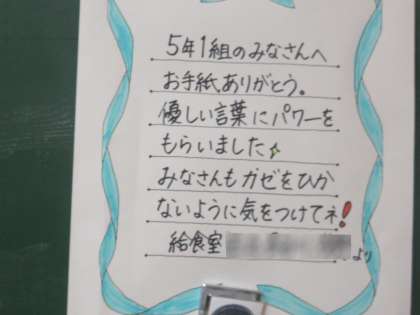 5年1組のみなさんへ
お手紙ありがとう。
優しい言葉にパワーを
もらいました
みなさんもカゼをひか
ないように気をつけてネ!
給食室 より